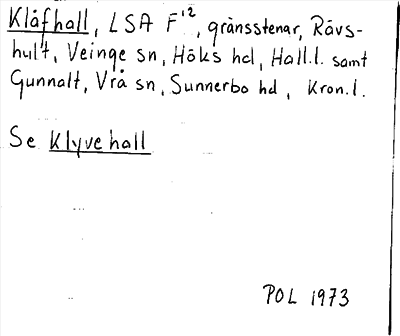 Klåfhall, LSA F'12, gränsstenar, Rävs-
hult, Veinge sn, Höks hd, Hall.l. samt
Gunnalt, Vrå sn, Sunnerbo hd, Kron.l.
Se Klyvehall
POL 1973